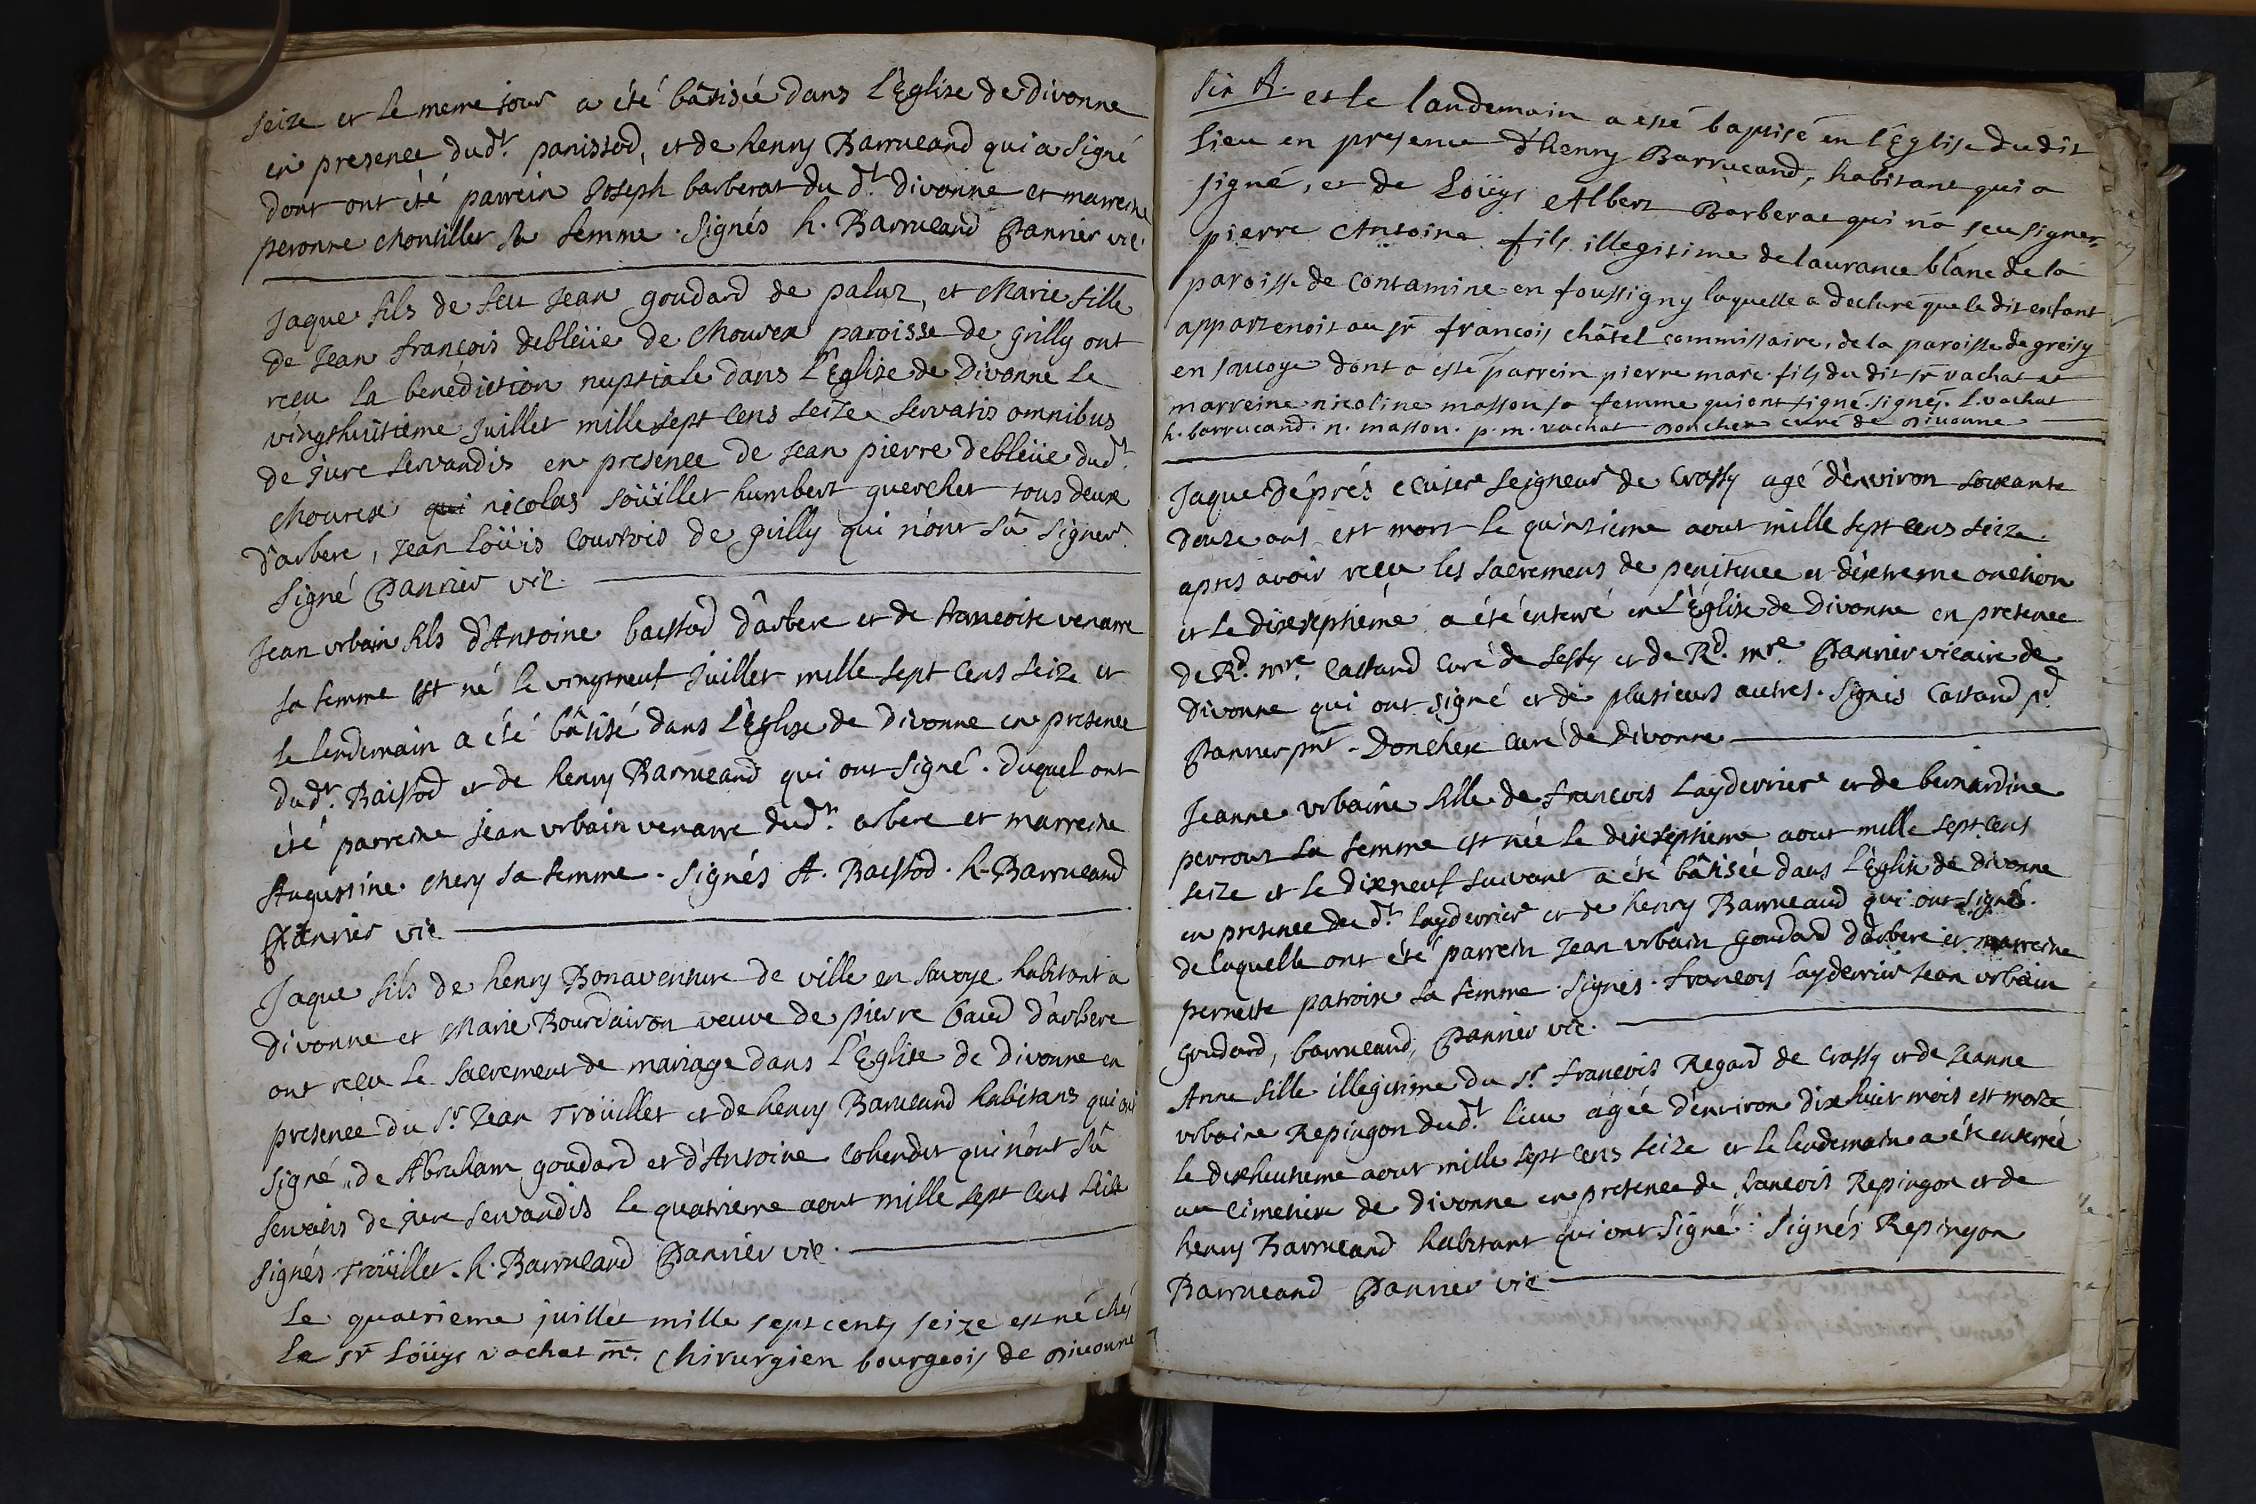 seize et le meme jour a été bâtisée dans l'Eglise de divonne
en presence dudt. panissod, et de henry Barrucand qui a signé
dont ont été parrein Joseph barberat du dt. divonne et marreine
peronne Montillet sa femme. Signés h. Barrucand Pannier vic.
Jaque fils de feu Jean goudard de paluz, et Marie fille
de Jean françois debleüe de Mourex paroisse de grilly ont
recu la benédiction nuptiale dans l'Eglise de Divonne le
vingthuitieme Juillet mille sept cens seize servatis omnibus
de jure servandis en presence de Jean pierre debleüe dudt.
Mourex qui nicolas soüillet humbert querchet tous deux
d'arbere, Jean Loüis Courtois de grilly qui n'ont sû signer.
Signé Pannier vic.
Jean urbain fils d'Antoine baissod d'arbere et de francoise venarre
sa femme est né le vingtneuf Juillet mille sept cens seize et
le lendemain a été bâtisé dans l'Eglise de Divonne en presence
dudt. Baissod et de henry Barrucand qui ont signé. duquel ont
été parreine Jean urbain venarre dudt. arbere et marreine
Augustine chery sa femme. Signés A. Baissod. h. Barrucand
Pannier vic
Jaque fils de henry Bonaventure de ville en savoye habitant a
Divonne et Marie Bourdairon veuve de pierre baud d'arbere
ont recu le sacrement de mariage dans l'Eglise de Divonne en
presence du Sr. Jean Troüillet et de henry Barrucand habitans qui ont
signé, de Abraham goudard et d'Antoine cohendet qui n'ont sû
servatis de jure servandis le quatrieme aout mille sept cens seize
signés Troüillet. h. Barrucand Pannier vic.
Le quatrieme juillet mille sept cents seize est né chés
Le sr Loüys vachat me. Chirurgien bourgeois de Divonne
et le landemain a esté baptisé en l'Eglise du dit
lieu en presence d'henry Barrucand, habitant qui a
signé, et de Loüys Albert Barberat qui na sçeu signer
pierre Antoine fils illegitime de laurance blanc de la
paroisse de Contamine en foussigny laquelle a declaré que le dit enfant
appartenoit au sr françois châtel commissaire, de la paroisse de greisy
en savoye dont a esté parrein pierre marc fils du dit sr vachat et
marreine nicoline masson sa femme qui ont signé. signés. L. vachat
h. barrucand. n. masson. p. m. vachat Donchex curé de Divonne
Jaque déprés ecuier seigneur de Crassy agé d'environ soixante
douze ans est mort le quinzieme aout mille sept cens seize.
apres avoir recu les sacremens de penitence et d'extreme onction
et le dixseptiéme a été enterré en l'Eglise de Divonne en presence
de Rd. mre. Castand curé de Sessy et de Rd. mre. Pannier vicaire de
Divonne qui ont signé et de plusieurs autres. Signés Castand pt.
Pannier pnt. Donchex curé de Divonne
Jeanne urbaine fille de françois Layderrier et de bernardine
perrout sa femme est née le dixseptieme aout mille sept cens
seize et le dixneuf suivant a été bâtisée dans l'Eglise de divonne
en presence du dt. layderrier et de henry Barrucand qui ont signé.
de laquelle ont été parrein Jean urbain goudard d'arbere et marreine
pernette patroix sa femme. Signés. françois layderrier Jean urbain
goudard, barrucand, Pannier vic.
Anne fille illegitime du sr. françois Regard de Crassy et de Jeanne
urbaine Repingon dudt. lieu agée d'environ dixhuit mois est morte
le dixhuitieme aout mille sept cens seize et le lendemain a été enterrée
au cimetiere de Divonne en presence de françois Repingon et de
henry Barrucand habitant qui ont signé: signés Repingon
Barrucand Pannier vic